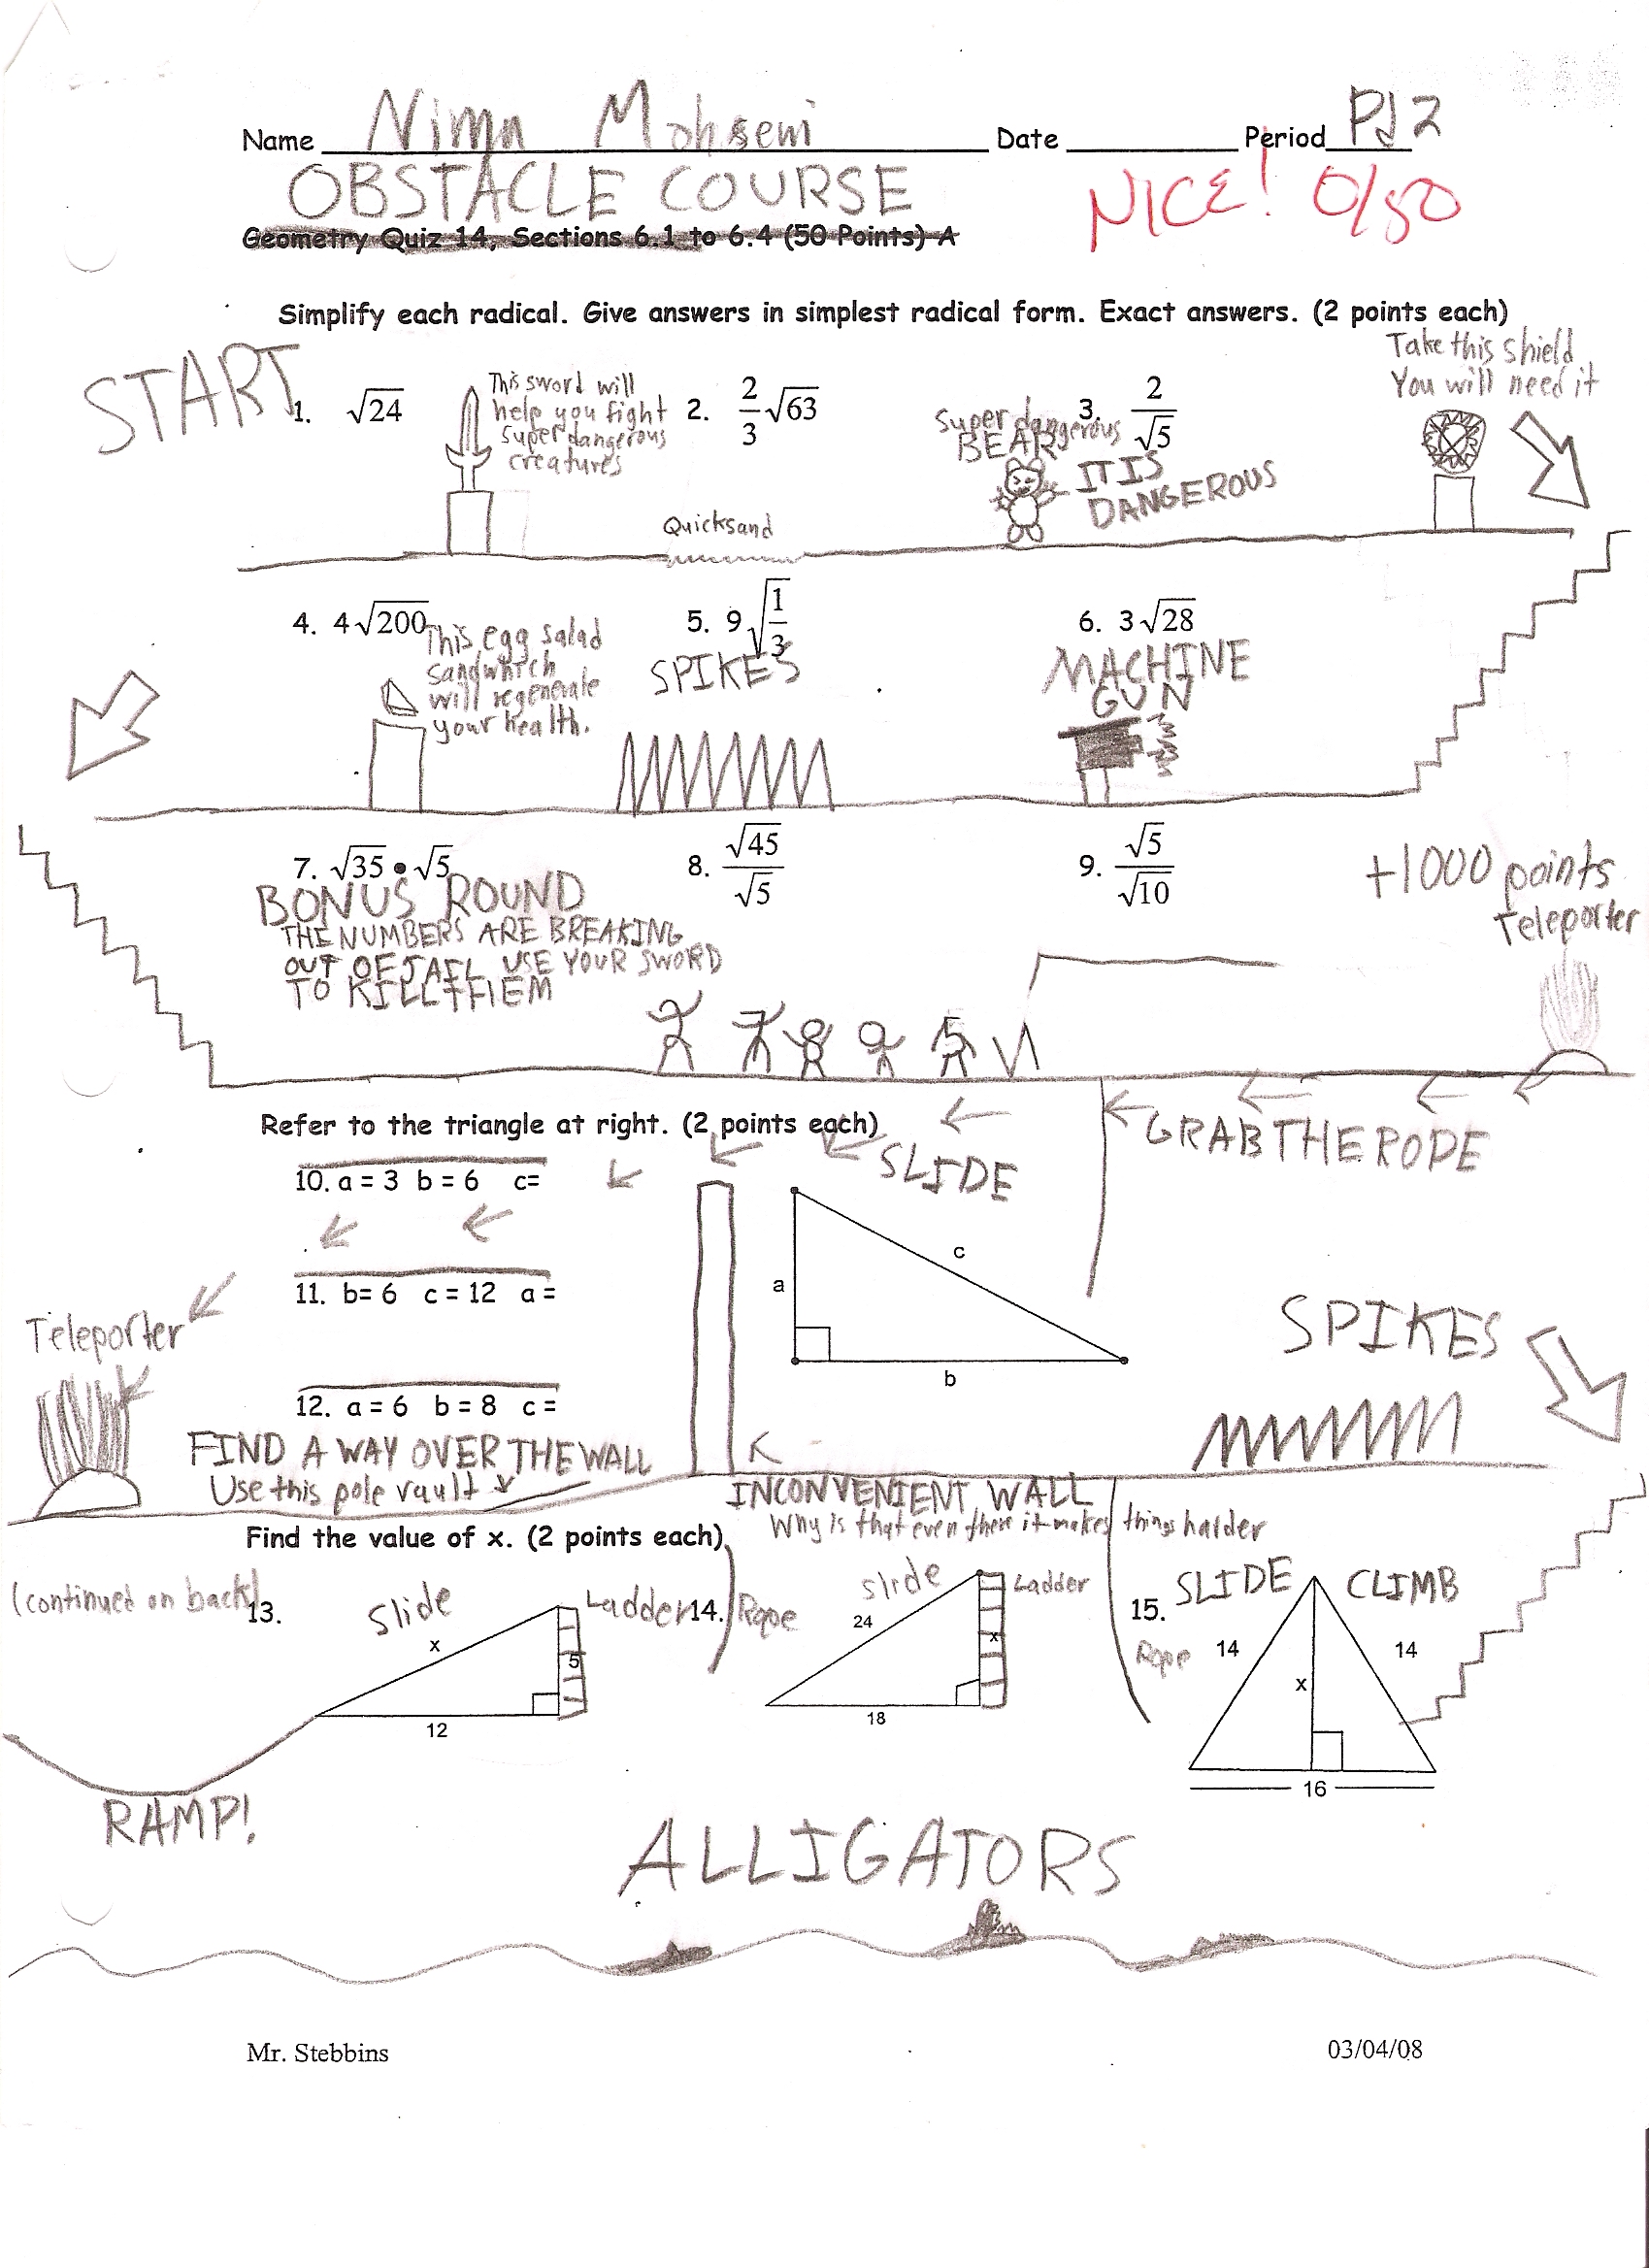 Name Nima Mohseni Date Period PJ2
OBSTACLE COURSE
NICE! 0/50
Geometry Quiz 14, Sections 6.1 to 6.4 (50 Points) A
Simplify each radical. Give answers in simplest radical form. Exact answers. (2 points each)
START
1. √24
This sword will
help you fight
super dangerous
creatures
2. 2/3 √63
3. 2/√5
Super dangerous
BEAR
IT IS
DANGEROUS
Take this shield
You will need it
Quicksand
4. 4√200
This egg salad
sandwhich
will regenerate
your health.
5. 9√1/3
SPIKES
6. 3√28
MACHINE
GUN
7. √35 • √5
8. √45/√5
9. √5/√10
BONUS ROUND
THE NUMBERS ARE BREAKING
OUT OF JAIL USE YOUR SWORD
TO KILL THEM
+1000 points
Teleporter
Refer to the triangle at right. (2 points each)
GRAB THE ROPE
SLIDE
10. a = 3 b = 6 c=
11. b= 6 c = 12 a =
12. a = 6 b = 8 c =
a
c
b
Teleporter
SPIKES
FIND A WAY OVER THE WALL
Use this pole vault
INCONVENIENT WALL
Why is that even there it makes things harder
Find the value of x. (2 points each)
(continued on back)
13.
Slide
Ladder
x
5
12
14.
Rope
slide
Ladder
24
x
18
15.
SLIDE
CLIMB
Rope
14
14
x
16
RAMP!
ALLIGATORS
Mr. Stebbins
03/04/08